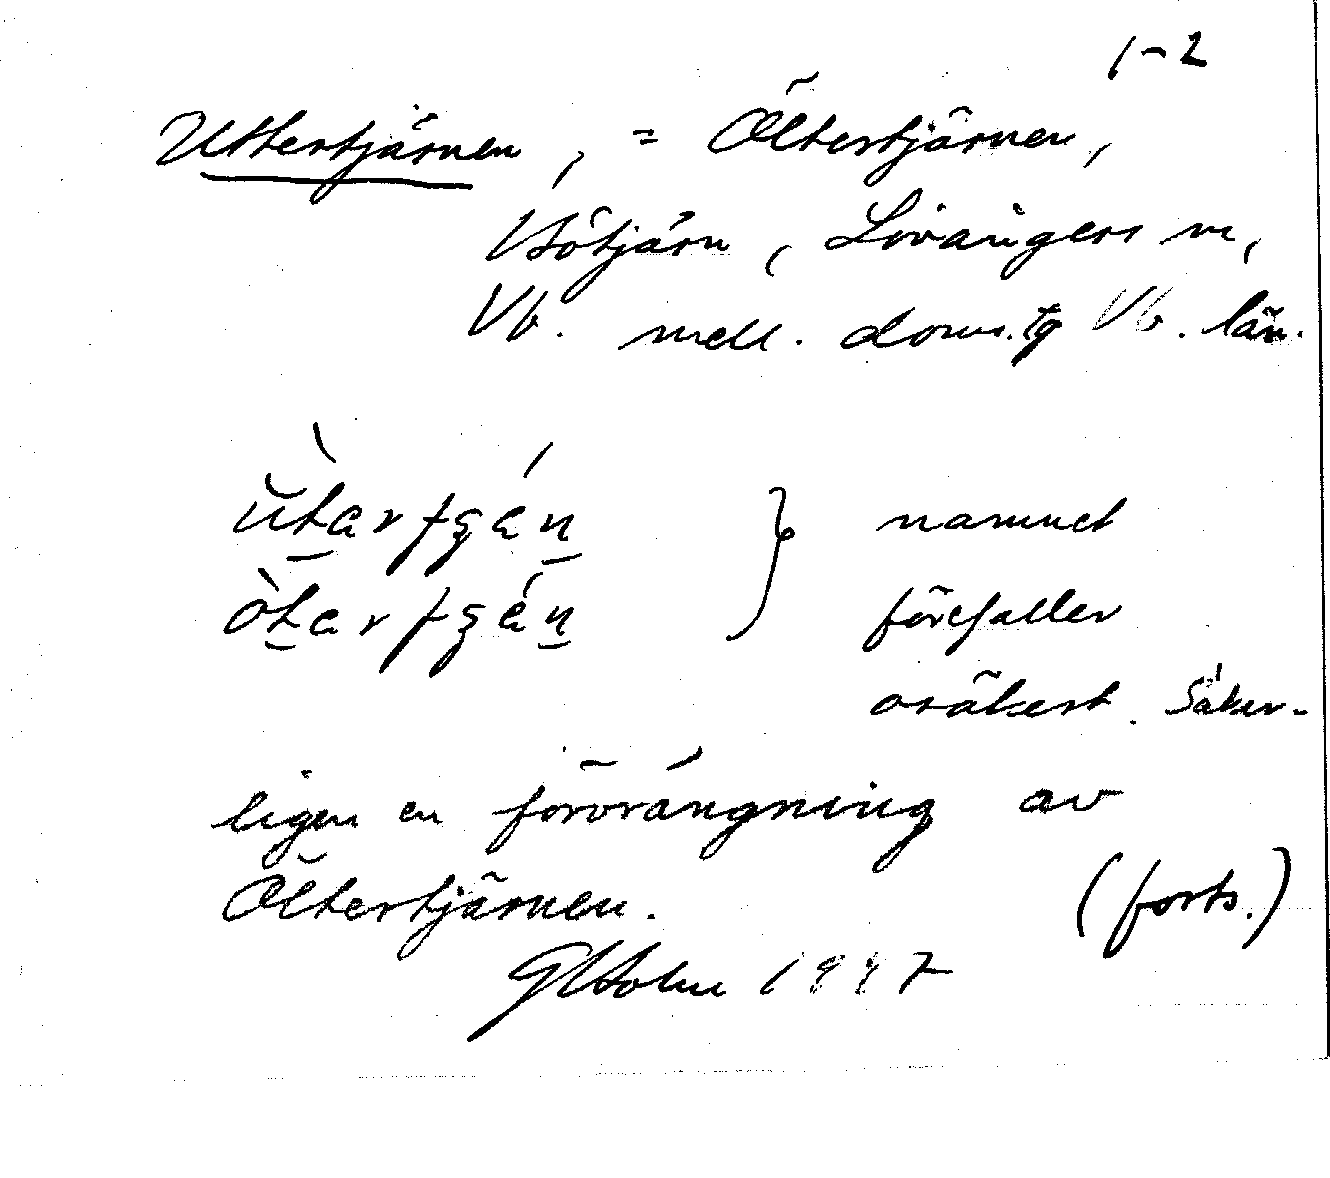 1-2
Uttertjärnen, = Öltertjärnen,
Vbötjärn, Lövångers sn,
Vb. mell. doms.tg Vb. län.
ùtartʃę́n } namnet
òtartʃę́n förefaller
osäkert. Säker-
ligen en förvrängning av
Öltertjärnen. (forts.)
G Holm 1947